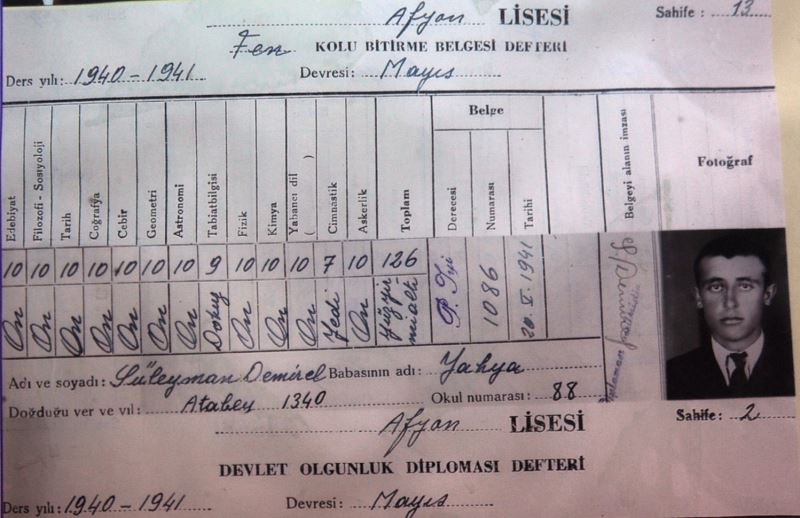 Afyon LİSESİ Sahife: 13
Fen KOLU BİTİRME BELGESİ DEFTERİ
Ders yılı: 1940-1941 Devresi: Mayıs
Edebiyat Filozofi - Sosyoloji Tarih Coğrafya Cebir Geometri Astronomi Tabiatbilgisi Fizik Kimya Yabancı dil ( ) Cimnastik Askerlik Toplam Belge Derecesi Numarası Tarihi Belgeyi alanın imzası Fotoğraf
10 10 10 10 10 10 10 9 10 10 10 7 10 126 P. İyi 1086 20.V.1941 S. Demirel
On On On On On On On Dokuz On On On Yedi On yüzyirmialtı
Adı ve soyadı: Süleyman Demirel Babasının adı: Yahya
Doğduğu yer ve yıl: Atabey 1340 Okul numarası: 88
Afyon LİSESİ Sahife: 2
DEVLET OLGUNLUK DİPLOMASI DEFTERİ
Ders yılı: 1940-1941 Devresi: Mayıs